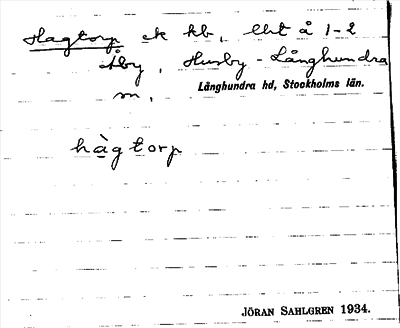 Hagtorp ek kb, lht å 1-2
Åby, Husby-Långhundra
sn,
Långhundra hd, Stockholms län.
hàgtorp
JÖRAN SAHLGREN 1934.